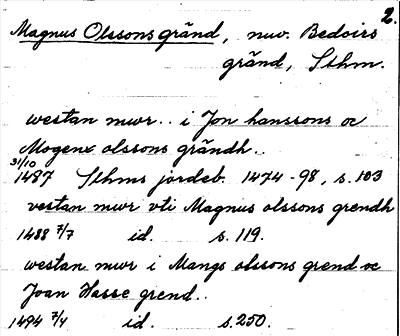 2.
Magnus Olssons gränd, nuv. Bedoirs
gränd, Sthm.
westan mwr.. i Jon hanssons oc
Mogens olssons grändh..
31/10
1487 Sthms jordeb. 1474-98, s. 103
vestan mwr vti Magnus olssons grendh
1488 7/7 id. s. 119.
westan mwr i Mangs olssons grend oc
Joan Hasse grend..
1494 7/4 id. s. 250.